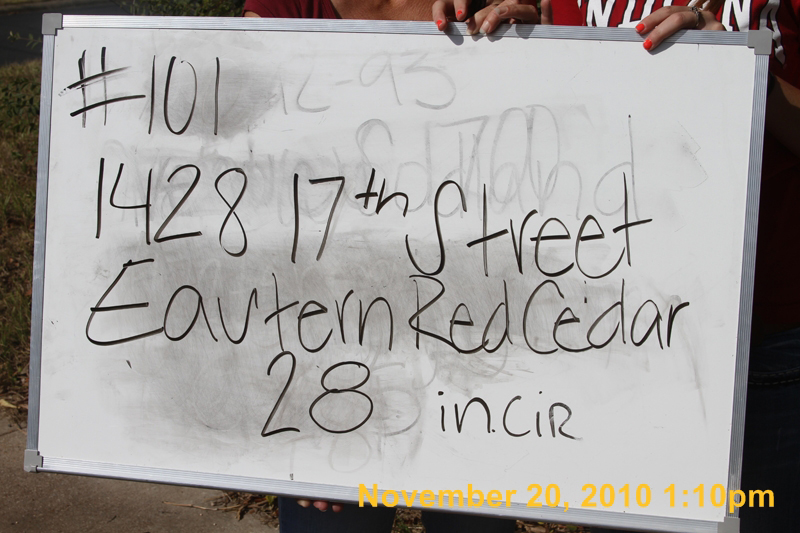 #101
1428 17th Street
Eavtern Red Cedar
28 in.CiR
November 20, 2010 1:10pm